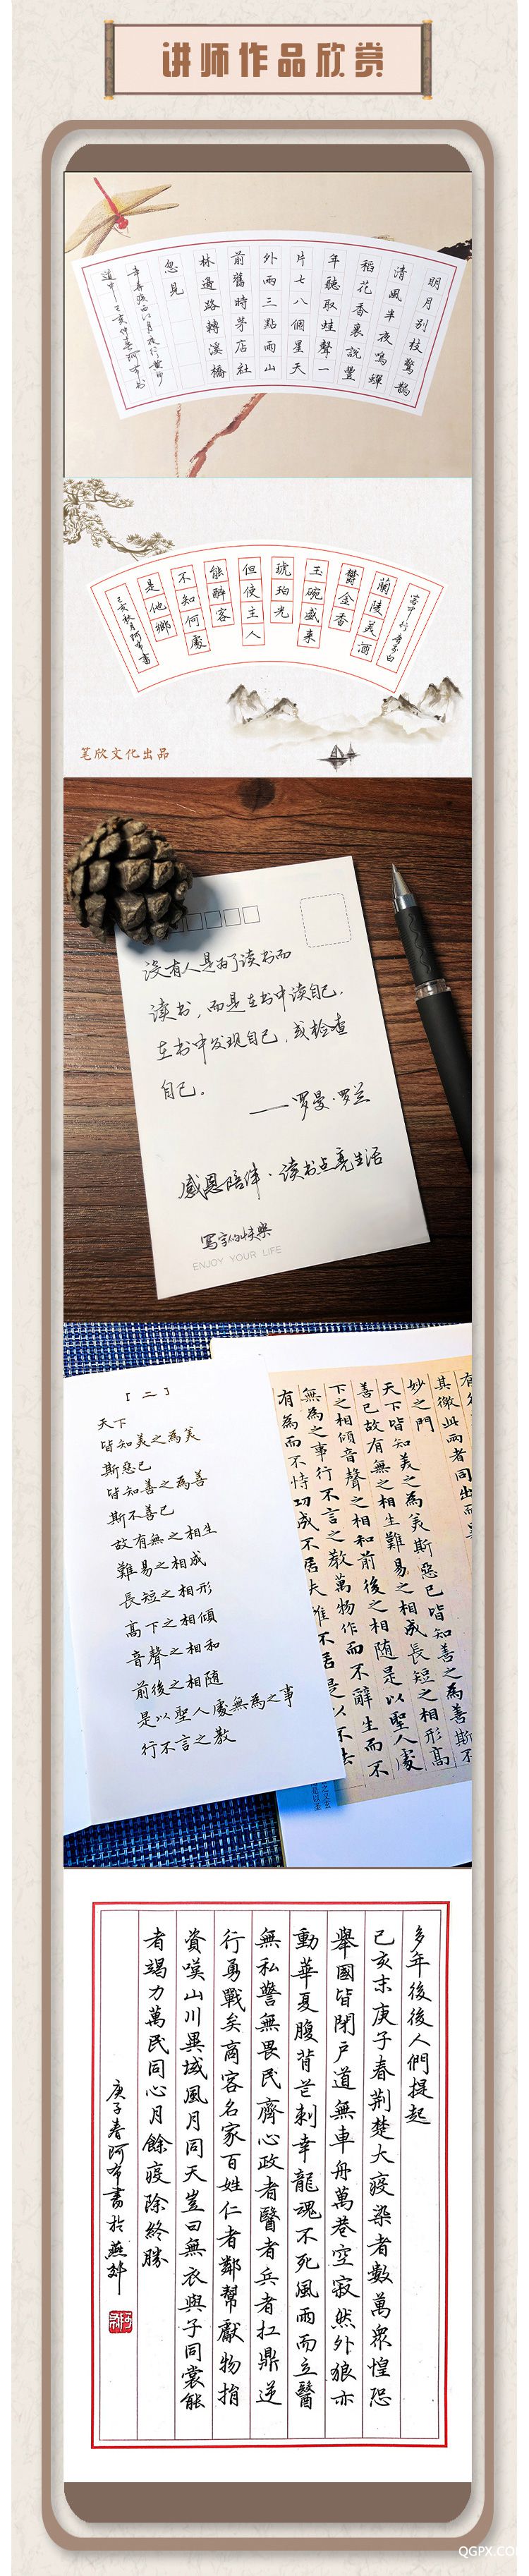 讲师作品欣赏
明月别枝驚鵲
清風半夜鳴蟬
稻花香裏說豐
年聽取蛙聲一
片七八個星天
外兩三點雨山
前舊時茅店社
林邊路轉溪橋
忽見
辛弃疾西江月夜行黄沙
道中 己亥仲春阿布书
客中行 唐李白
蘭陵美酒
鬱金香
玉碗盛来
琥珀光
但使主人
能醉客
不知何處
是他鄉
己亥秋月阿布書
笔欣文化出品
没有人是为了读书而
读书，而是在书中读自己，
在书中发现自己，或检查
自己。
——罗曼·罗兰
感恩陪伴·读书点亮生活
寫字的快樂
ENJOY YOUR LIFE
[ 二 ]
天下
皆知美之為美
斯惡已
皆知善之為善
斯不善已
故有無之相生
難易之相成
長短之相形
高下之相傾
音聲之相和
前後之相随
是以聖人處無為之事
行不言之教
其徼此兩者同出而異
妙之門
天下皆知美之為美斯惡已皆知善之為善斯不
善已故有無之相生難易之相成長短之相形高
下之相傾音聲之相和前後之相随是以聖人處
無為之事行不言之教萬物作而不辭生而不
有為而不恃功成不居夫唯不居是以不去
多年後後人們提起
己亥末庚子春荆楚大疫染者數萬衆惶恐
舉國皆閉戶道無車舟萬巷空寂然外狼亦
動華夏腹背芒刺幸龍魂不死風雨而立醫
無私警無畏民齊心政者醫者兵者扛鼎逆
行勇戰矣商客名家百姓仁者鄰幫獻物捐
資嘆山川異域風月同天豈曰無衣與子同裳能
者竭力萬民同心月餘疫除終勝
庚子春阿布書於燕郊
QGPX.CO